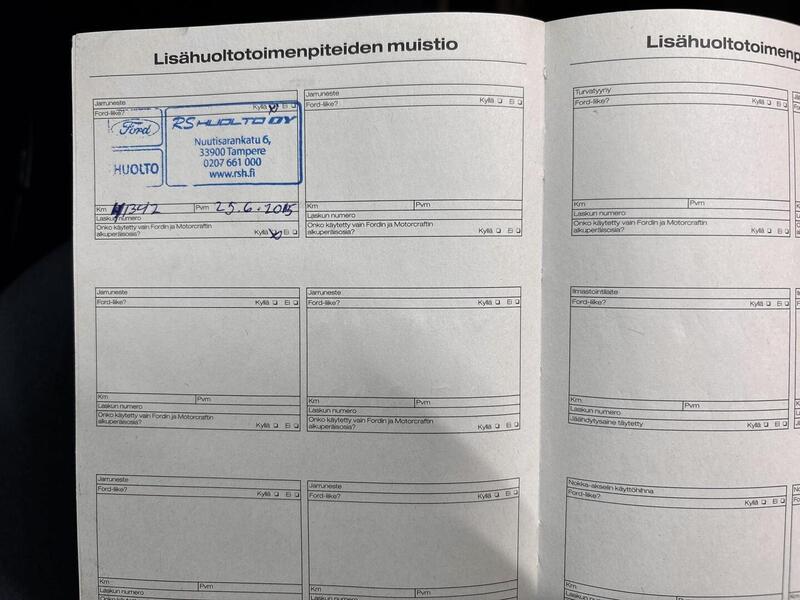 Lisähuoltotoimenpiteiden muistio
Jarruneste
Ford-liike? Kyllä Ei
Ford
HUOLTO
RS HUOLTO OY
Nuutisarankatu 6,
33900 Tampere
0207 661 000
www.rsh.fi
Km 41392 Pvm 25.6.2015
Laskun numero
Onko käytetty vain Fordin ja Motorcraftin
alkuperäisosia? Kyllä Ei
Jarruneste
Ford-liike? Kyllä Ei
Km Pvm
Laskun numero
Onko käytetty vain Fordin ja Motorcraftin
alkuperäisosia? Kyllä Ei
Jarruneste
Ford-liike? Kyllä Ei
Km Pvm
Laskun numero
Onko käytetty vain Fordin ja Motorcraftin
alkuperäisosia? Kyllä Ei
Jarruneste
Ford-liike? Kyllä Ei
Km Pvm
Laskun numero
Onko käytetty vain Fordin ja Motorcraftin
alkuperäisosia? Kyllä Ei
Jarruneste
Ford-liike? Kyllä Ei
Km Pvm
Laskun numero
Jarruneste
Ford-liike? Kyllä Ei
Km Pvm
Laskun numero
Onko käytetty vain Fordin ja Motorcraftin
Lisähuoltotoimenp
Turvatyyny
Ford-liike? Kyllä Ei
Km Pvm
Laskun numero
Onko käytetty vain Fordin ja Motorcraftin
alkuperäisosia? Kyllä Ei
Ilmastointilaite
Ford-liike? Kyllä Ei
Km Pvm
Laskun numero
Jäähdytysaine täytetty Kyllä Ei
Nokka-akselin käyttöhihna
Ford-liike? Kyllä Ei
Km
Laskun numero